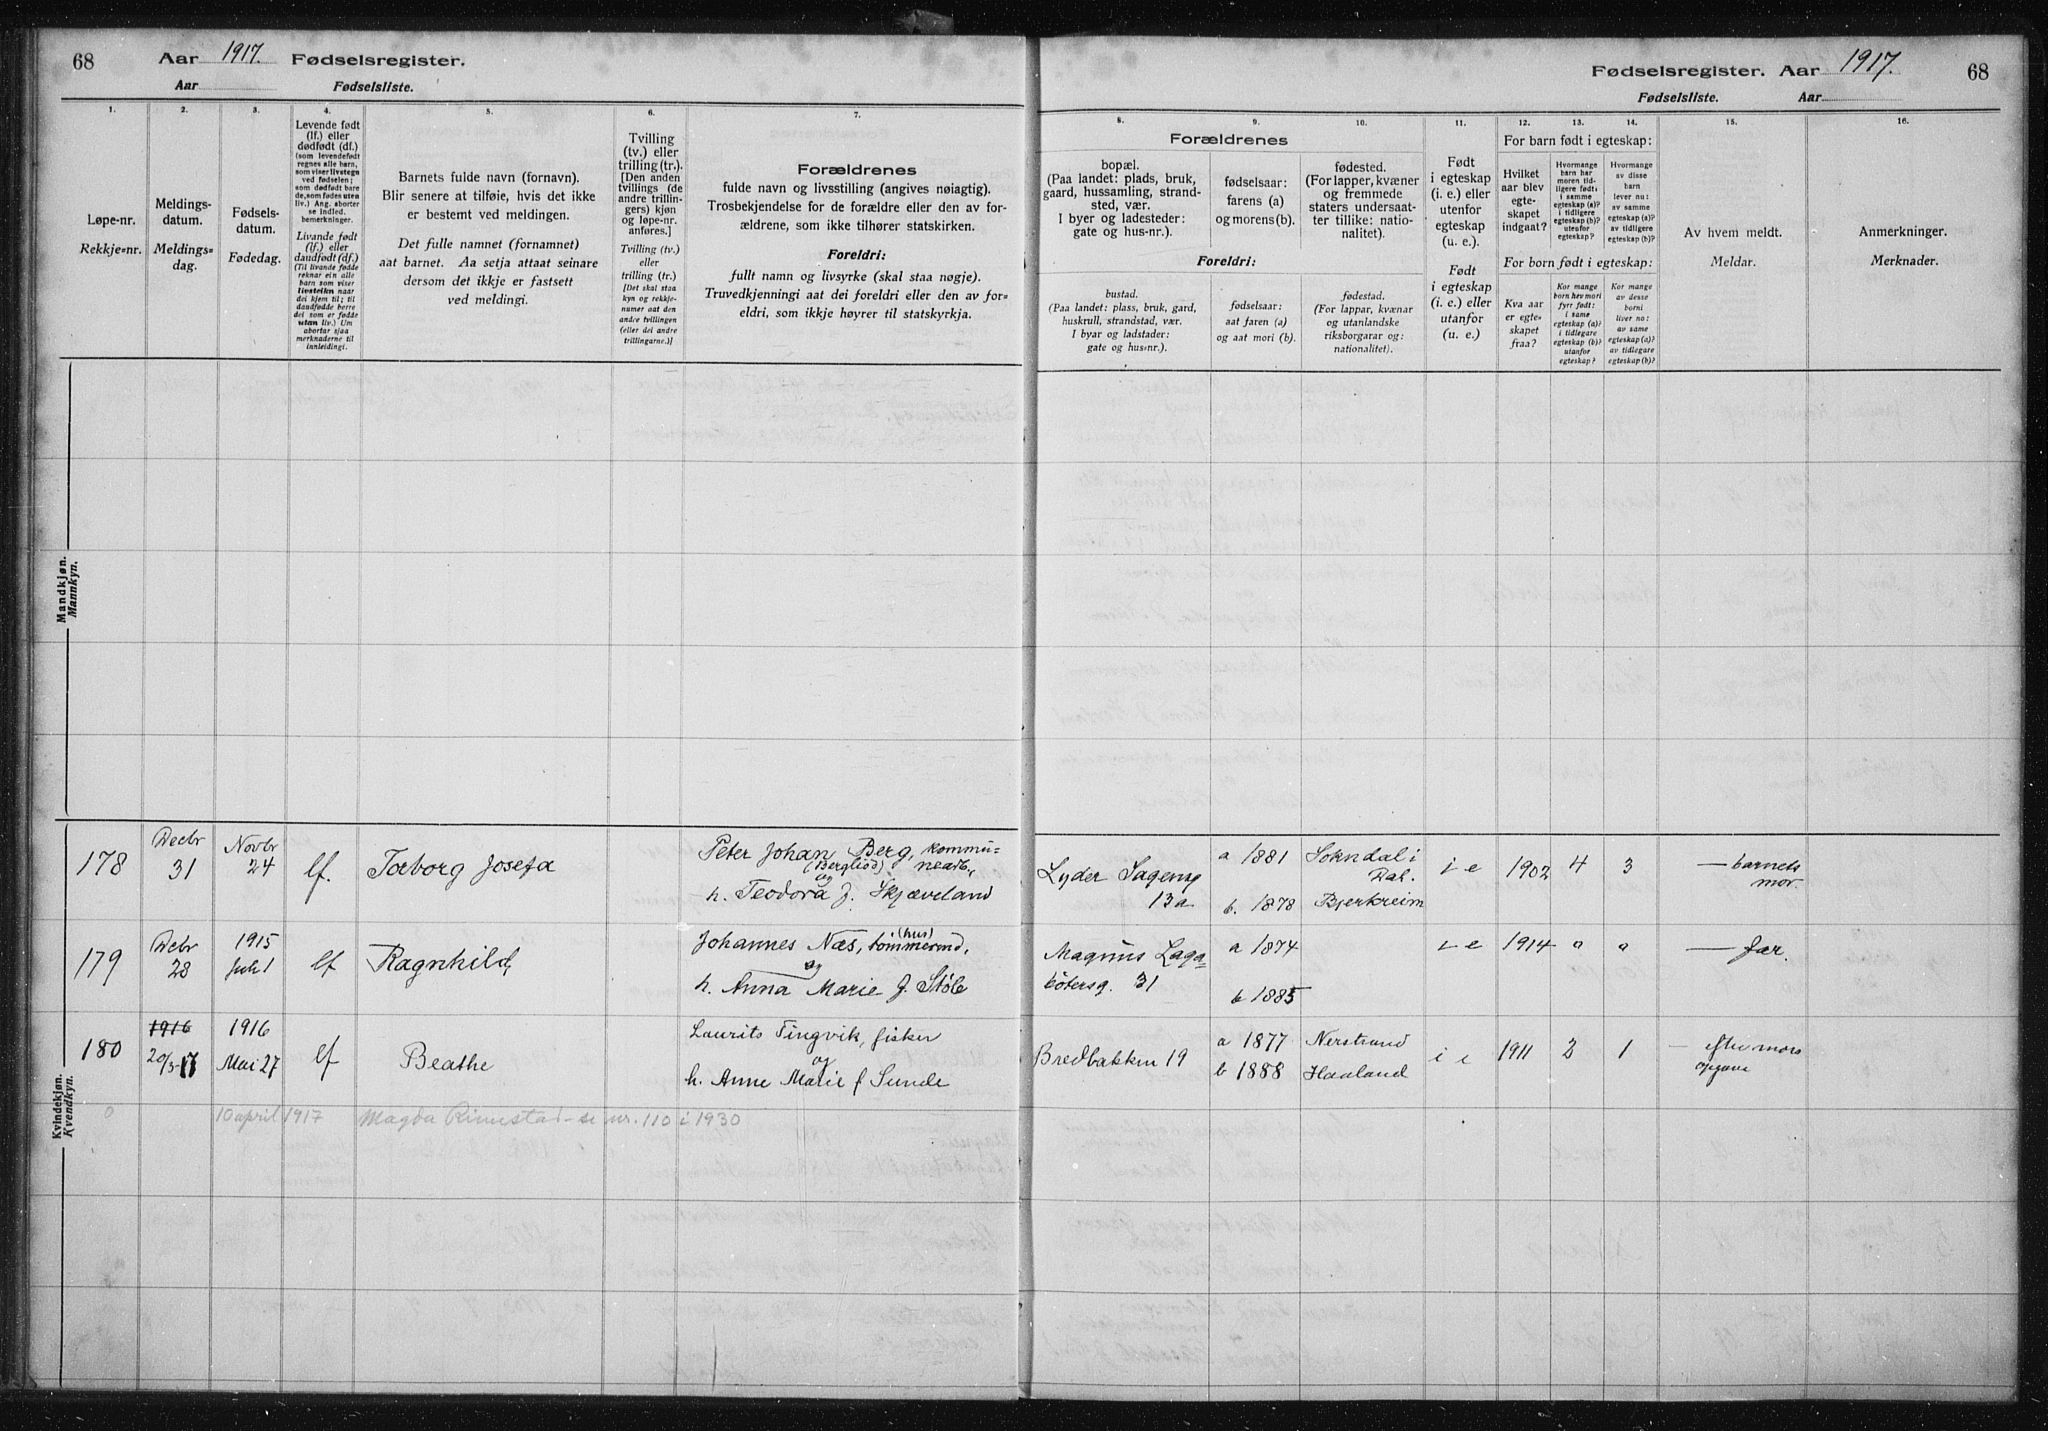 68 Aar 1917. Fødselsregister.
Aar Fødselsliste.
Fødselsregister. Aar 1917. 68
Fødselsliste. Aar
1.
Løpe-nr.
Rekkje=nr.
2.
Meldings-
datum.
Meldings=
dag.
3.
Fødsels-
datum.
Fødedag.
4.
Levende født
(lf.) eller
dødfødt (df.)
(som levendefødt
regnes alle barn,
som viser livstegn
ved fødselen;
som dødfødt bare
de, som fødes uten
liv.) Ang. aborter
se indled.
bemerkninger.
Livande født
(lf.) eller
daudfødt (df.)
(Til livande fødde
reknar ein alle
barn som viser
livsteikn naar
dei kjem til; til
daudfødde berre
dei som er fødde
utan liv.) Um
abortar sjaa
merknaderne til
innleidingi.
5.
Barnets fulde navn (fornavn).
Blir senere at tilføie, hvis det ikke
er bestemt ved meldingen.
Det fulle namnet (fornamnet)
aat barnet. Aa setja attaat seinare
dersom det ikkje er fastsett
ved meldingi.
6.
Tvilling
(tv.) eller
trilling (tr.).
[Den anden
tvillings (de
andre trillin-
gers) kjøn
og løpe-nr.
anføres.]
Tvilling (tv.)
eller
trilling (tr.)
[Det skal staa
kyn og rekkje-
numer aat den
andre tvillingen
(eller dei andre
trillingarne.)]
7.
Forældrenes
fulde navn og livsstilling (angives nøiagtig).
Trosbekjendelse for de forældre eller den av for-
ældrene, som ikke tilhører statskirken.
Foreldri:
fullt namn og livsyrke (skal staa nøgje).
Truvedkjenningi aat dei foreldri eller den av for=
eldri, som ikkje høyrer til statskyrkja.
Forældrenes
8.
bopæl.
(Paa landet: plads, bruk,
gaard, hussamling, strand-
sted, vær.
I byer og ladesteder:
gate og hus-nr.).
9.
fødselsaar:
farens (a)
og morens (b).
10.
fødested.
(For lapper, kvæner
og fremmede
staters undersaat-
ter tillike: natio-
nalitet).
Foreldri:
bustad.
(Paa landet: plass, bruk, gard,
huskrull, strandstad, vær.
I byar og ladstader:
gate og hus=nr.).
fødselsaar:
aat faren (a)
og aat mori (b).
fødestad.
(For lappar, kvænar
og utanlandske
riksborgarar og:
nationalitet).
11.
Født
i egteskap
(i. e.) eller
utenfor
egteskap
(u. e.).
Født
i egteskap
(i. e.) eller
utanfor
(u. e.).
12. 13. 14.
For barn født i egteskap:
Hvilket
aar blev
egte-
skapet
indgaat?
Hvormange
barn har
moren tid-
ligere født:
i samme
egteskap (a)?
i tidligere
egteskap (b)?
utenfor
egteskap?
Hvormange
av disse
barn
lever nu:
av samme
egteskap (a)?
av tidligere
egteskap (b)?
For born født i egteskap:
Kva aar
er egte=
skapet
fraa?
Kor mange
born hev mori
fyrr født:
i same
egteskap (a)?
i tidlegare
egteskap (b)?
utanfor
egteskap?
Kor mange
av desse
borni
liver no:
av same
egteskap (a)?
av tidlegare
egteskap (b)?
15.
Av hvem meldt.
Meldar.
16.
Anmerkninger.
Merknader.
Mandkjøn.
Mannkyn.
Kvindekjøn.
Kvendkyn.
178 Decbr 31 Novbr 24 lf. Torborg Josefa
Peter Johan Berg, kommu-
(Bergliod) nearb.,
og
h. Teodora f. Skjæveland
Lyder Sagensg 13a
a 1881 Sokndal i Dal.
b. 1878 Bjerkreim
i e 1902 4 3 — barnets mor.
179 Decbr 28 1915 Juli 1 lf Ragnhild,
(hus)
Johannes Næs, tømmermd,
og
h. Anna Marie f. Støle
Magnus Laga-
bøtersg. 31
a 1874
b 1885
i e 1914 " " — far.
180 1916 20/3-17 1916 Mai 27 lf Beathe
Laurits Tingvik, fisker
og
h. Anne Marie f Sunde
Bredbakken 19
a 1877 Nerstrand
b 1888 Haaland
i e 1911 2 1 — efter mors opgave
0 10 april 1917 Magda Rimestad - se nr. 110 i 1930